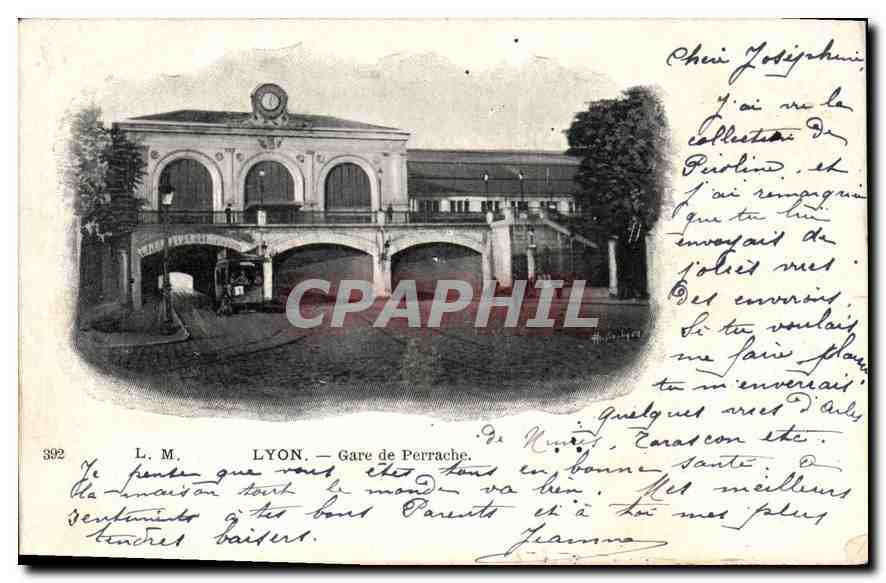 Cheri Joséphine,
J'ai vu la
collection De
Piroline, et
j'ai remarqué
que tu lui
envoyais de
jolies vues
Des environs.
Si tu voulais
me faire plaisir
tu m'enverrais
quelques vues d'Arles
de Nimes, Tarascon etc.
392 L. M. LYON. — Gare de Perrache.
CPAPHIL
Je pense que vous êtes tous en bonne santé. à
la maison tout le monde va bien. Mes meilleurs
sentiments à tes bons Parents et à toi mes plus
tendres baisers.
Jeanne